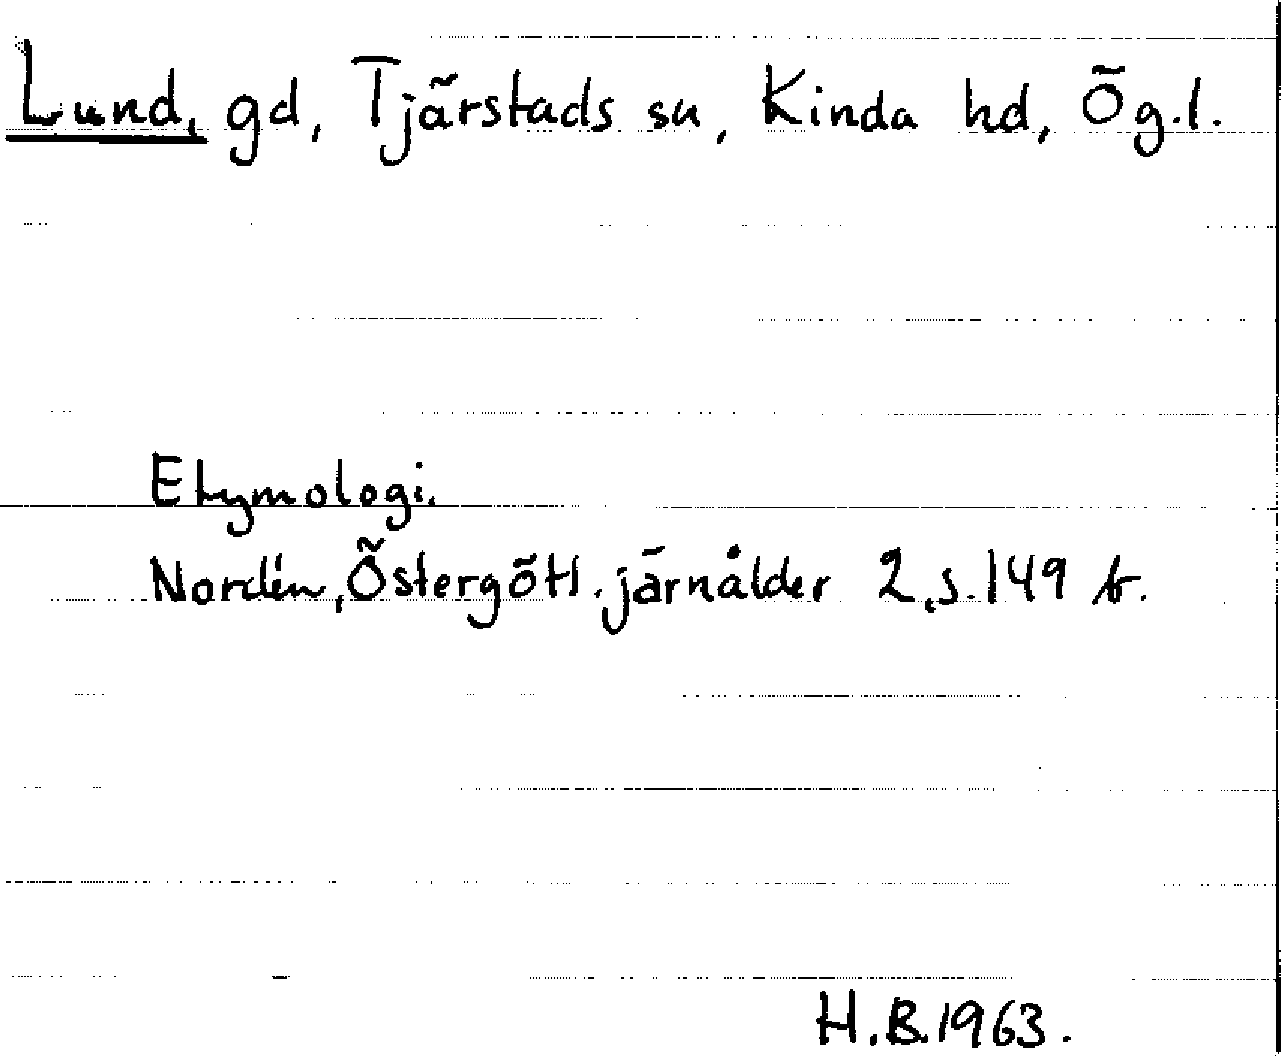 Lund, gd, Tjärstads sn, Kinda hd, Ög.l.
Etymologi.
Nordén, Östergötl. järnålder 2, s. 149 f.
H.B. 1963.